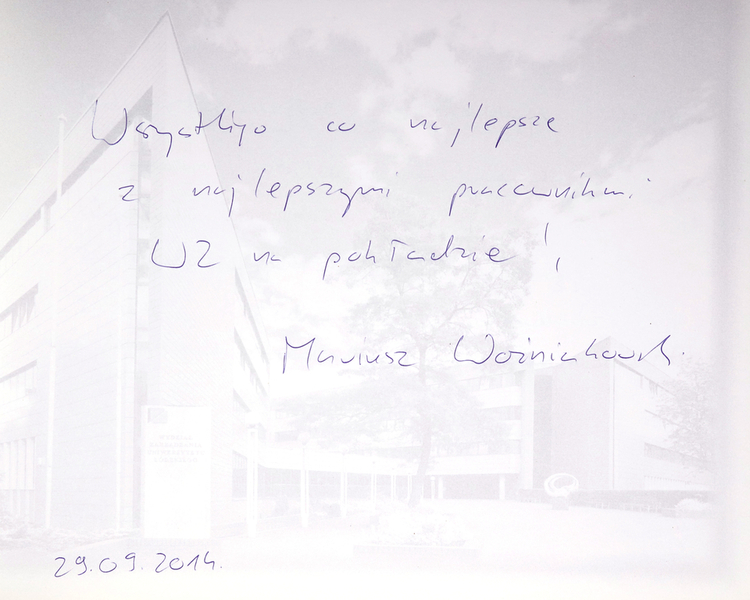 Wszystkiego co najlepsze
z najlepszymi pracownikami
WZ na pokładzie!
Mariusz Woźniakowski
29.09.2014.